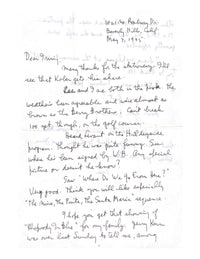 Beverly Hills, Calif.
May 7, 1945
Dear Irving,
Many thanks for the stationery. I'll
see that Kolen gets his share.
Lee and I are both in the pink. The
weather's been agreeable and we're almost as
brown as the Berry Brothers. Can't break
100 yet, though, on the golf course.
Heard Levant on the Hildegarde
program. Thought he was quite funny. Saw
where he's been signed by W.B. Any special
picture or doesn't he know?
Saw "Where Do We Go From Here?"
Very good. Think you will like especially
"The Nina, the Pinta, the Santa Maria" sequence
I hope you get that showing of
"Rhapsody In Blue" for my family. Jerry Kern
was over last Sunday to tell me, among